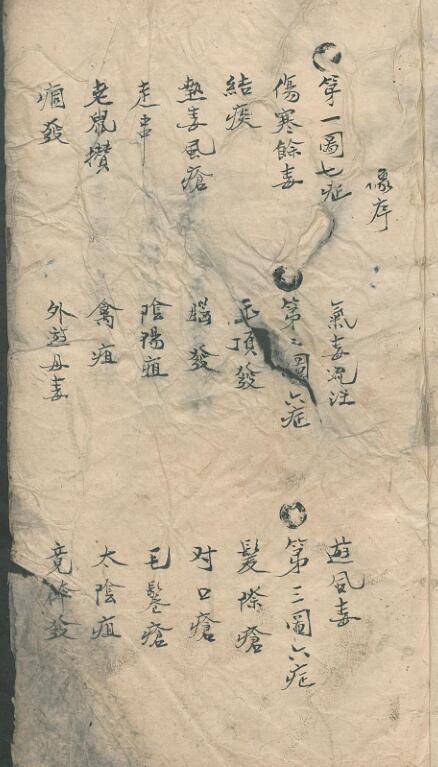 像序
第一圖七症
傷寒餘毒
結痰
熱毒風瘡
老鼠攢
痼發
氣毒流注
第二圖六症
正頂發
腦發
陰陽疽
禽疽
外遊丹毒
遊風毒
第三圖六症
髮際瘡
对口瘡
毛鬈瘡
太陰疽